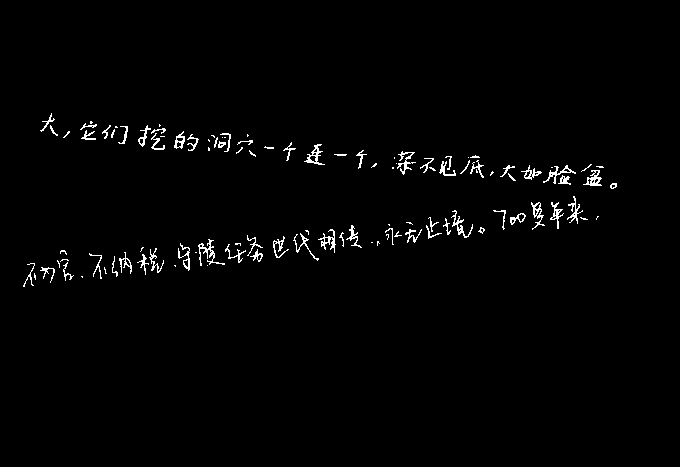 大,它们挖的洞穴一个连一个,深不见底,大如脸盆。
不为官、不纳税,守陵任务世代相传,永无止境。700多年来,